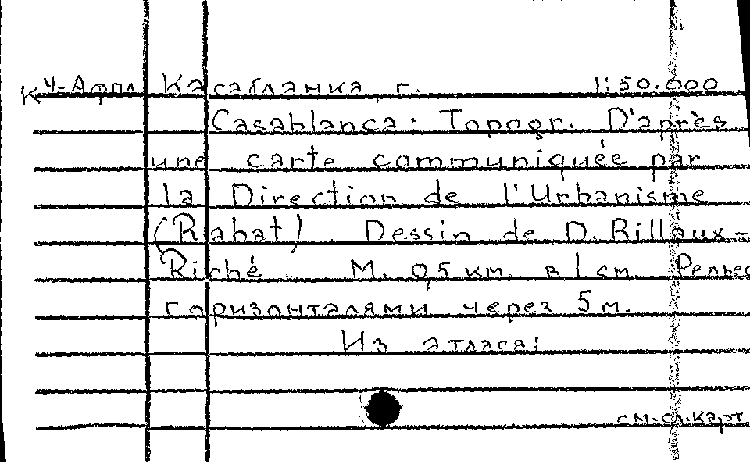 К Ч-Афр. Касабланка, г. 1:50.000
Casablanca: Topogr. D'après
une carte communiquée par
la Direction de l'Urbanisme
(Rabat). Dessin de D. Rillaux-
Riché. М. 0,5 км. в 1 см. Рельеф
горизонталями через 5 м.
Из атласа:
см.сл.карт.